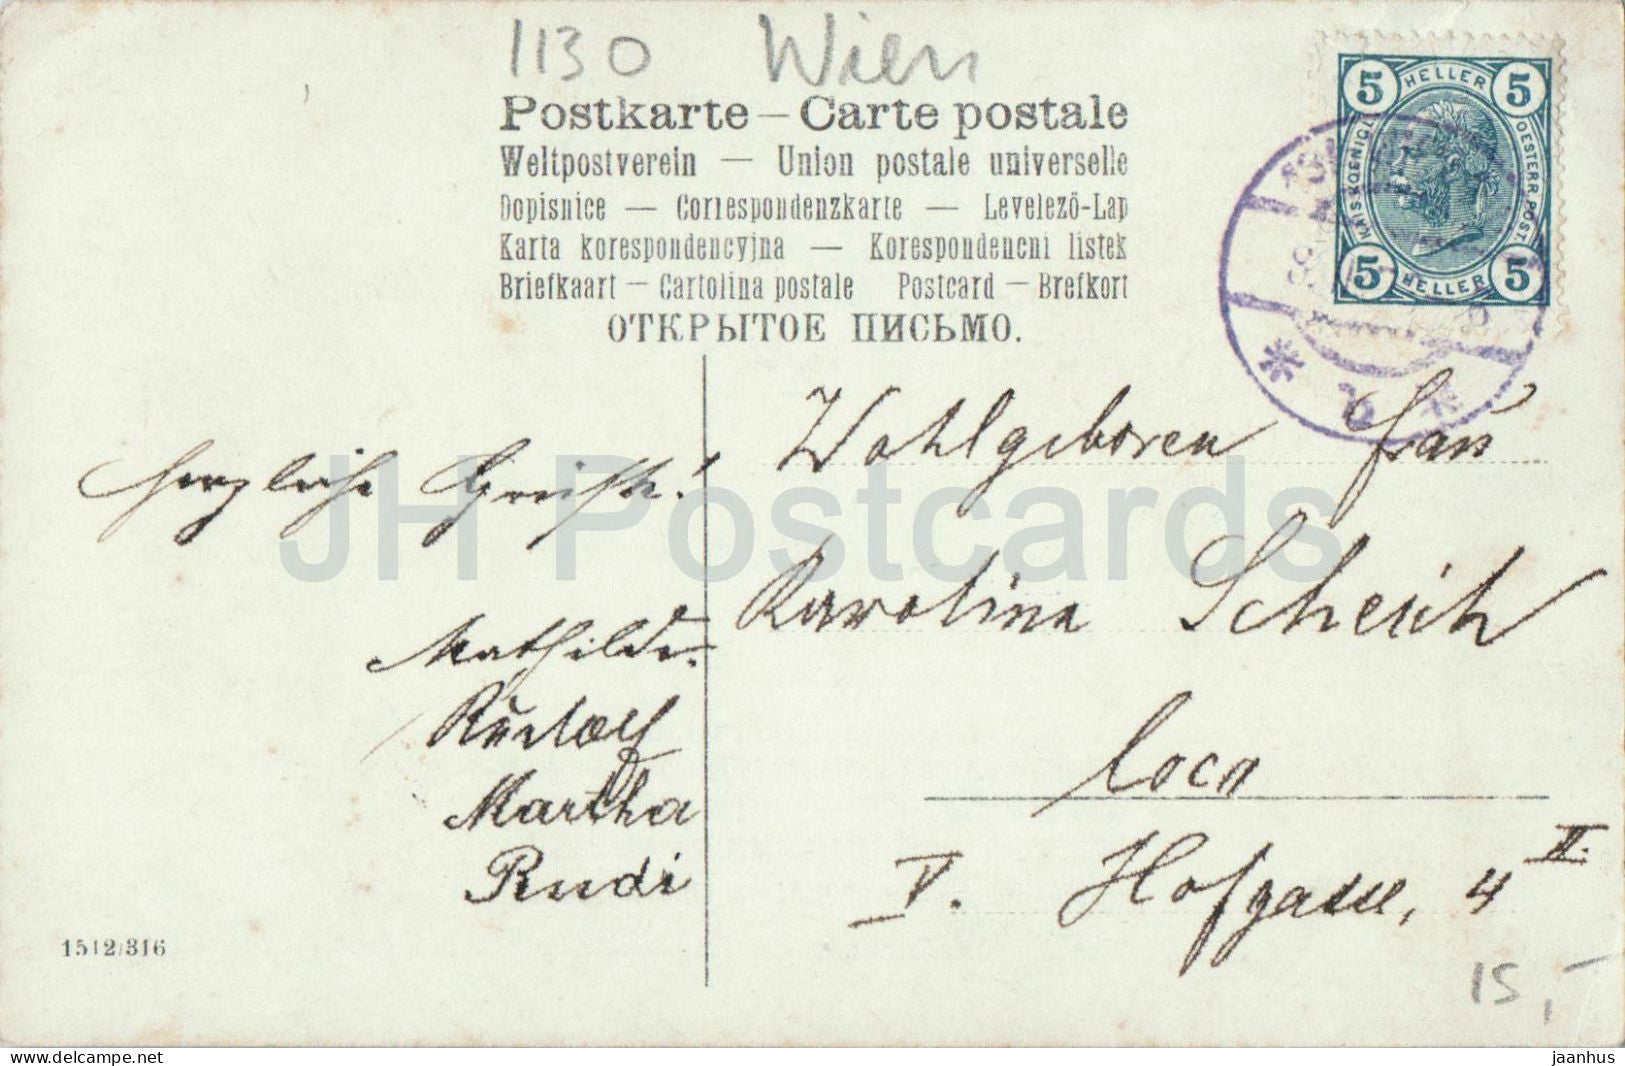 1130 Wien
Postkarte – Carte postale
Weltpostverein — Union postale universelle
Dopisnice — Correspondenzkarte — Levelező-Lap
Karta korespondencyjna — Korespondencni listek
Briefkaart – Cartolina postale Postcard – Brefkort
ОТКРЫТОЕ ПИСЬМО.
5 HELLER 5
KAIS. KOENIGL. OESTERR. POST.
5 HELLER 5
Wohlgeboren Frau
Herzliche Grüsse!
Karolina
Mathilde.
Rudolf
Martha
Rudi
loco
V. Hofgasse, 4 II.
1512/316
15,–
JH Postcards
www.delcampe.net
jaanhus